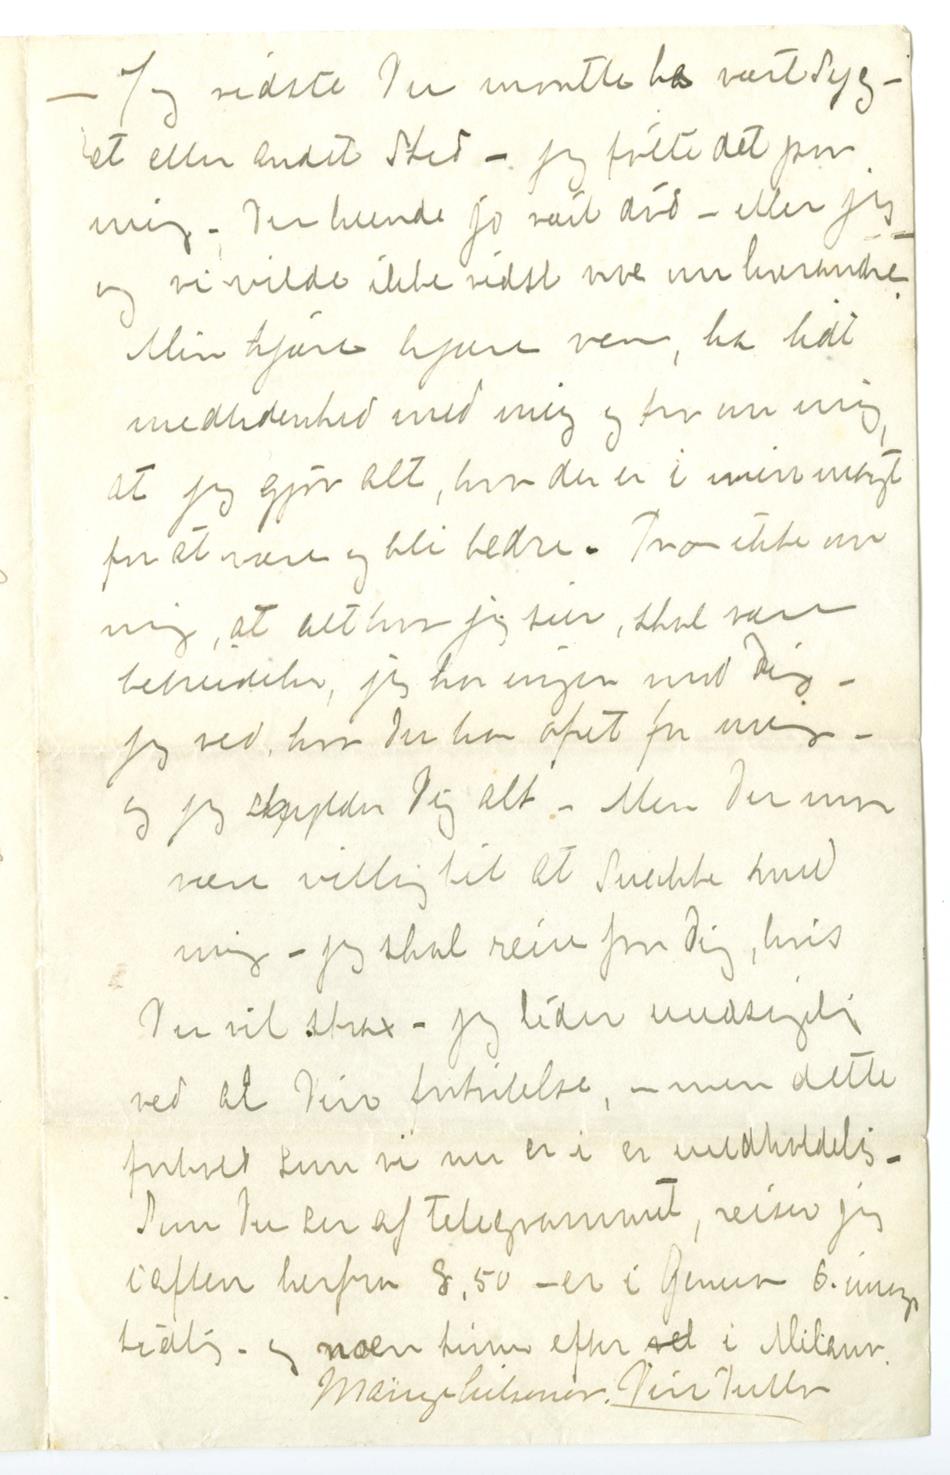 — Jeg vidste Du maatte ha vært syg –
et eller andet Sted – jeg følte det paa
mig – Du kunde jo vært død – eller jeg –
og vi vilde ikke vidst noe om hverandre.
Min kjære kjære ven, ha lidt
medlidenhed med mig og tro om mig,
at jeg gjør alt, hva der er i min magt
for at være og bli bedre. Tro ikke om
mig, at alt hva jeg sier, skal være
bebreidelse, jeg har ingen mod Dig –
jeg ved, hva Du har ofret for mig –
og jeg skylder Dig alt – Men Du maa
være villig til at snakke med
mig – jeg skal reise fra Dig, hvis
Du vil strax – jeg lider uudsigelig
ved al Din fortvilelse, – men dette
forhold som vi nu er i er uudholdelig –
Som Du ser af telegrammet, reiser jeg
iaften herfra 8,50 – er i Genua 6. imorg
tidlig – og noen timer efter i Milano.
Mange hilsener. Din Tulla